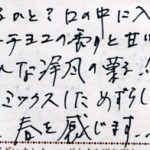 るのと？口の中に入
チョコの香りと甘い
んな洋風の菓子!
ミックスしためずらし
春を感じます..